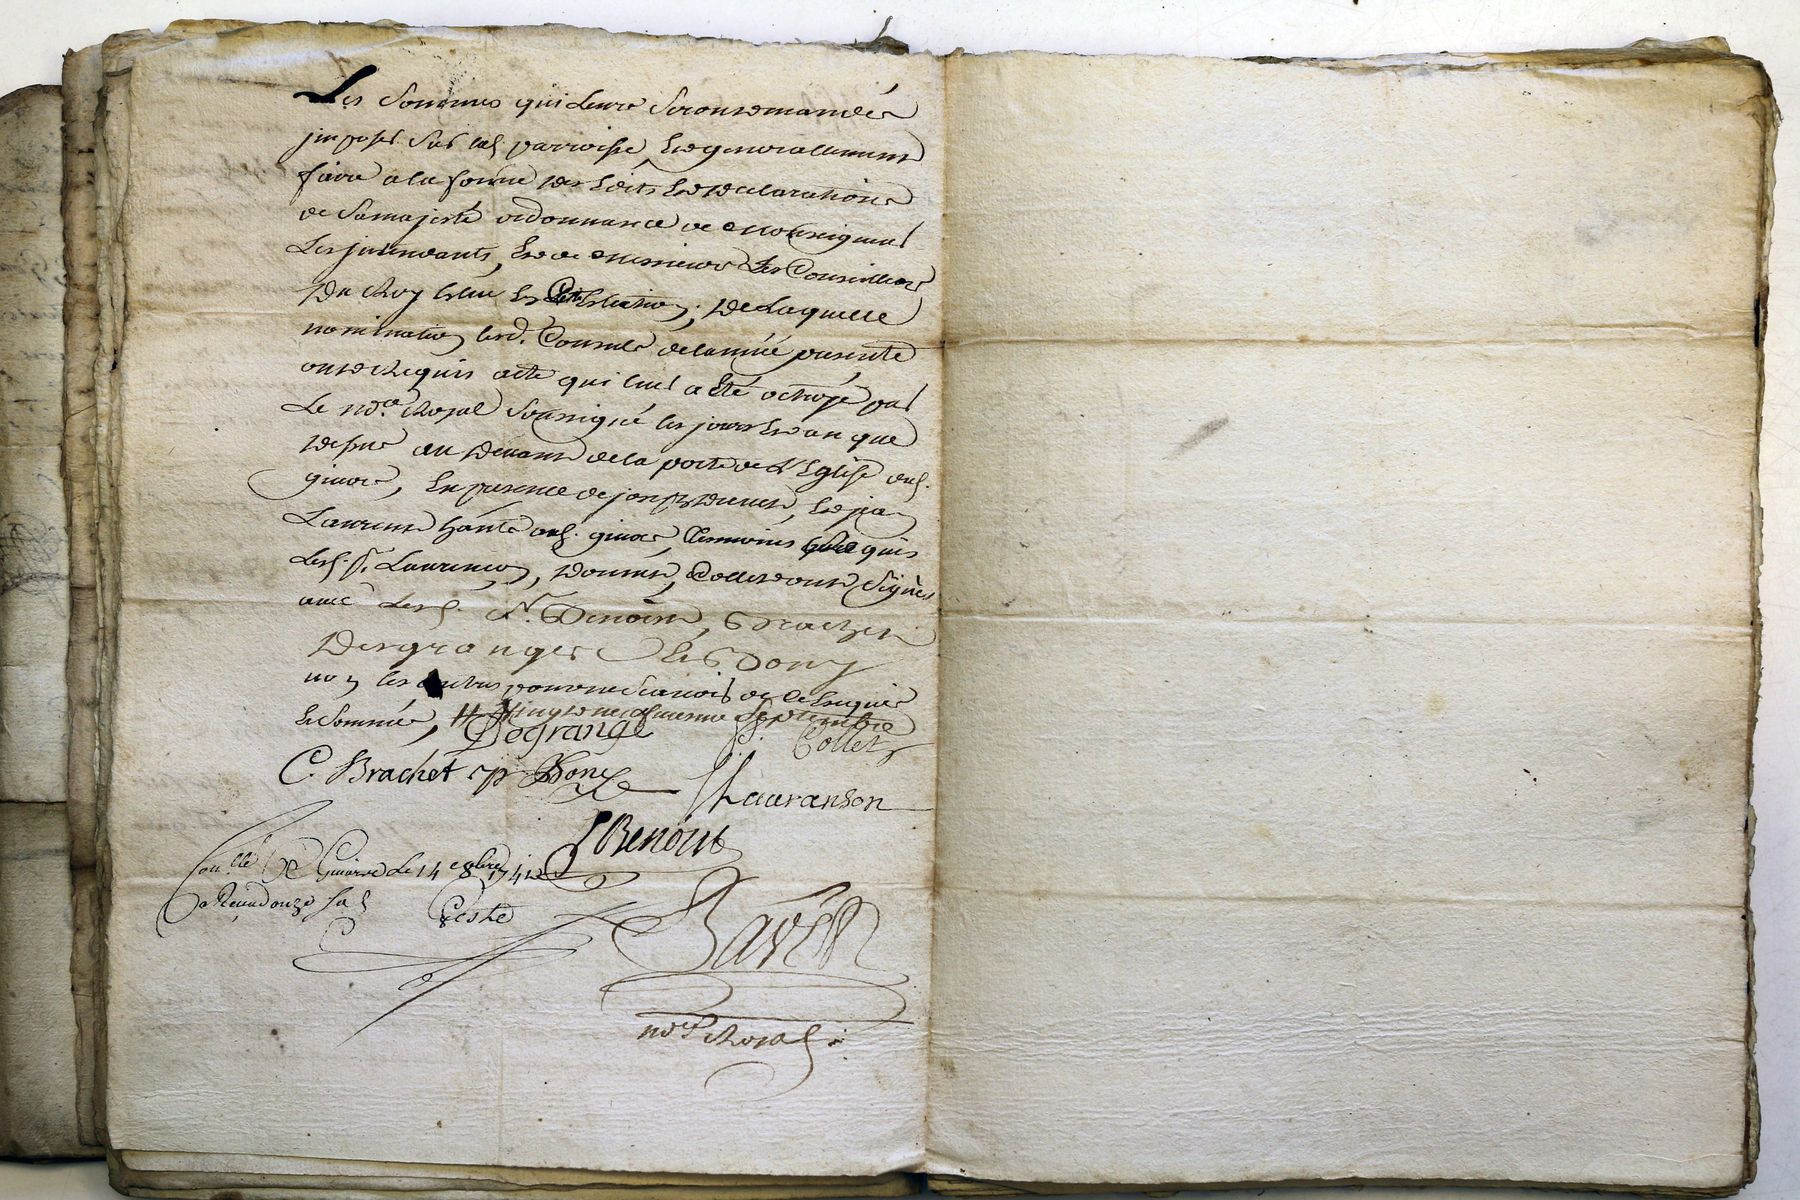 Les sommes qui leurs seront demandées
imposer sur lad. parroisse, et generallement
faire a la forme des Edits et declarations
de Sa majesté ordonnance de Monseigneur
Les jntendants, et de Messieurs Les Conseillers
Du Roy Esleus En Election; De Laquelle
nomination lesd. Consuls de lannée presente
ont Requis acte qui leur a Eté octroyé par
Le no.re Royal soussigné les jours et an que
dessus au Devant de la porte de L'Eglise dud.
givors, En presence de et jean
Laurent dud. givors, temoins
Lesd. sr. Lauranson, Collet ont signés
avec Lesd. Sr. Benoist, Brachet
Desgranges
non les autres pour ne scavoir de ce Enquis
et sommés, vingt neufvieme Septembre
Degrange Collet
C. Brachet
Lauranson
Benoist
Con.llé a Givors Le 14e 8bre 1741
Receu douze sols
nore Royal